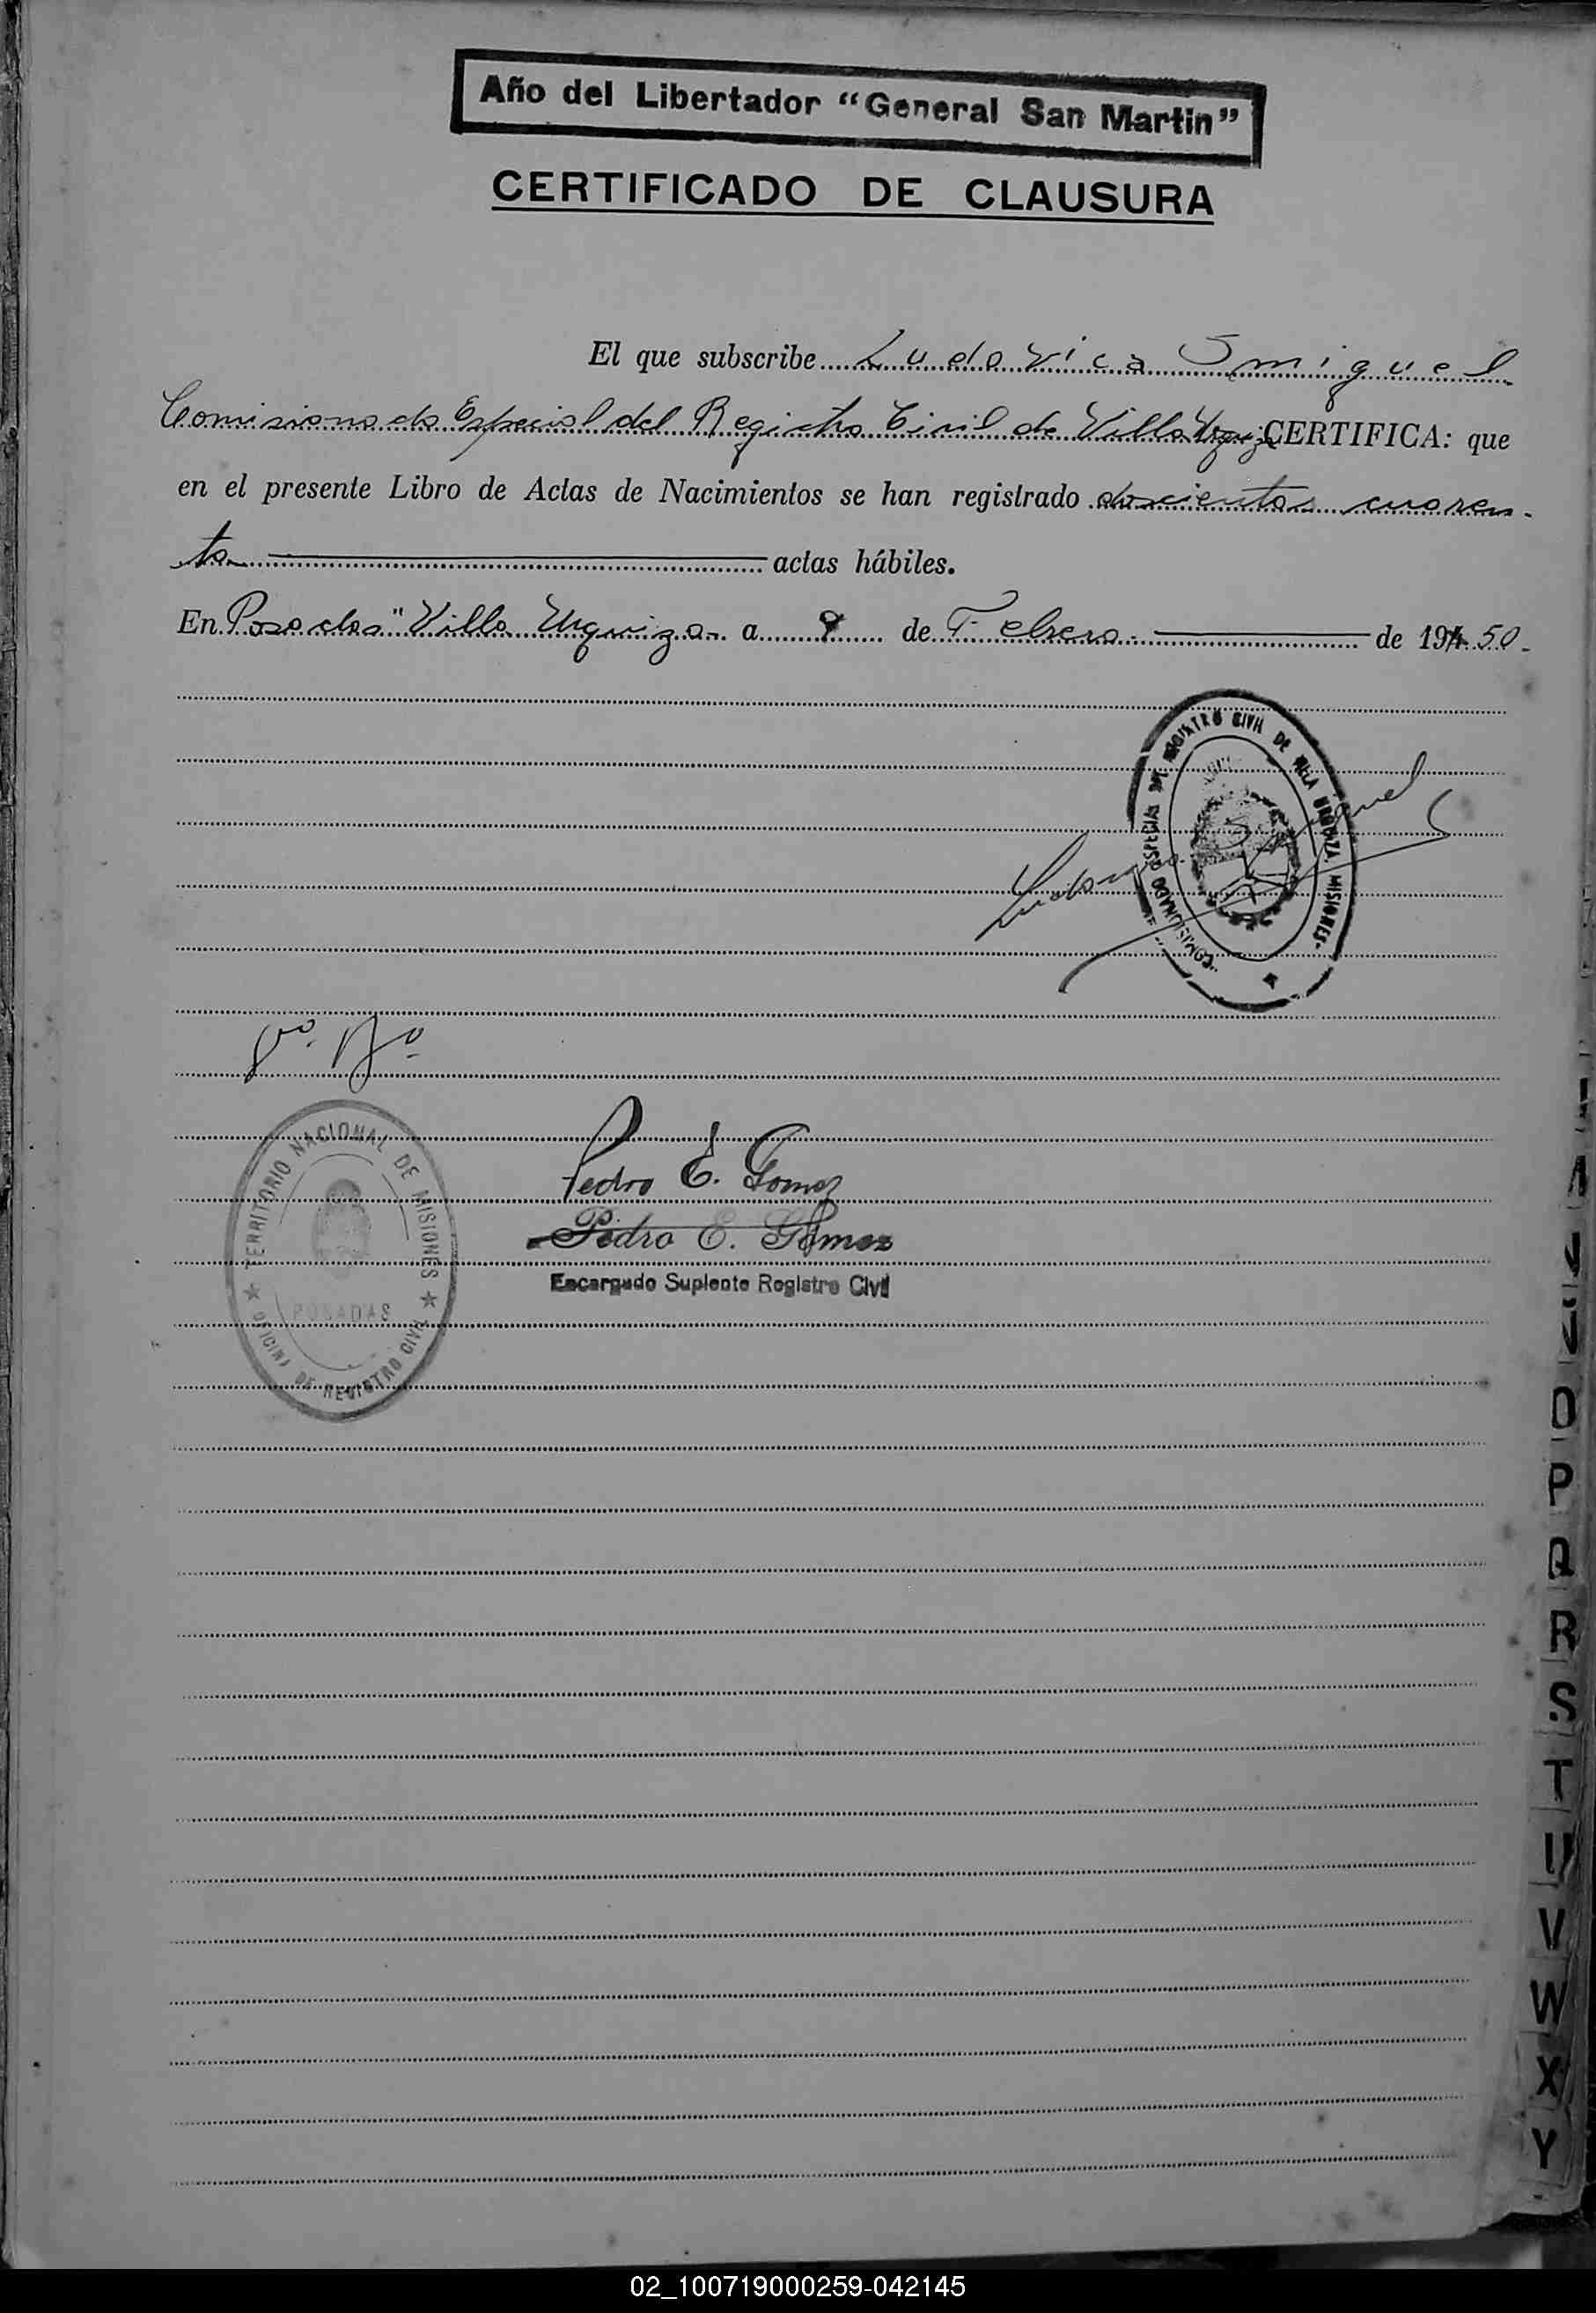 Año del Libertador “General San Martin”
CERTIFICADO DE CLAUSURA
El que subscribe Ludovica Smiguel
Comisionado Especial del Registro Civil de Villa Urquiza CERTIFICA: que
en el presente Libro de Actas de Nacimientos se han registrado doscientas cuaren-
ta actas hábiles.
En Posadas "Villa Urquiza. a 8 de Febrero. de 194 50.
COMISIONADO ESPECIAL DEL REGISTRO CIVIL DE VILLA URQUIZA MISIONES
Ludovica Smiguel
Vº Bº
TERRITORIO NACIONAL DE MISIONES
POSADAS
OFICINA DE REGISTRO CIVIL
Pedro E. Gomez
Pedro E. Gómez
Encargado Suplente Registro Civil
O
P
Q
R
S
T
U
V
W
X
Y
02_100719000259-042145